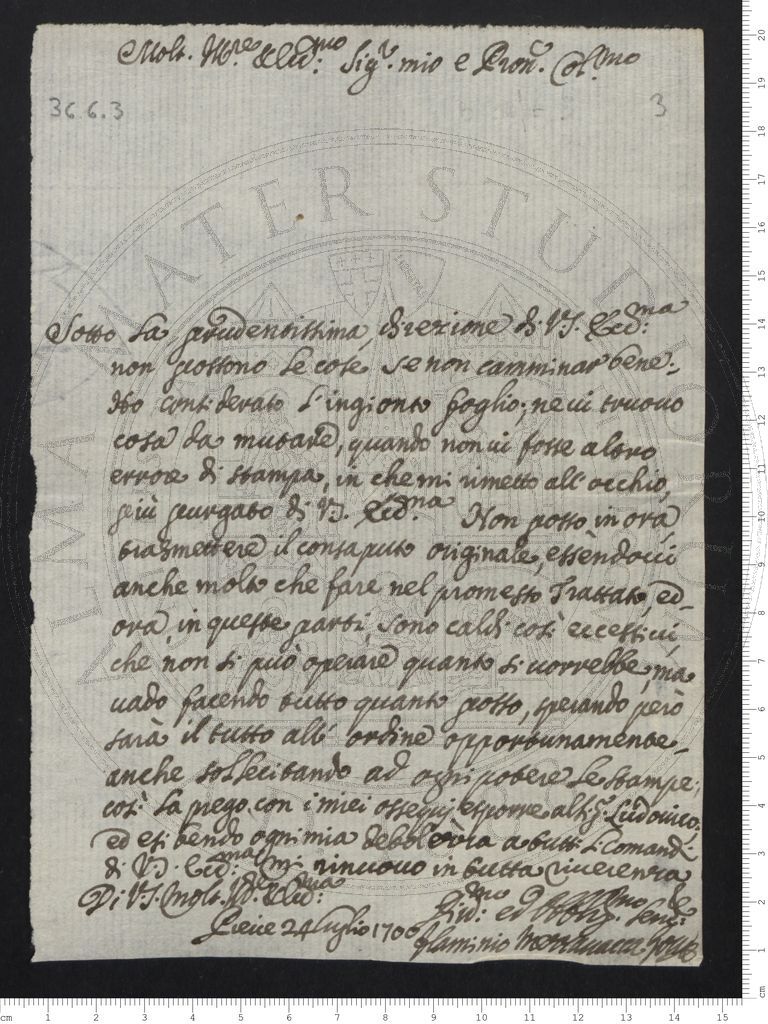 Molt. Ill.re & Ecc.mo Sig.r mio e Pron. Col.mo
36.6.3
3
Sotto la prudentissima direzione di V.S. Ecc.ma
non possono le cose se non camminar bene:
Hò considerato l'ingionto foglio; ne ui truouo
cosa da mutare, quando non ui fosse altro
errore di stampa, in che mi rimetto all'occhio,
più purgato di V.S. Ecc.ma Non posso in ora
trasmettere il consaputo originale, essendoui
anche molto che fare nel promesso Trattato, ed
ora in queste parti, sono caldi così eccessiui,
che non si può operare quanto si uorrebbe, ma
uado facendo tutto quanto posso, sperando però
sarà il tutto all' ordine opportunamente,
anche sollecitando ad ogni potere le stampe;
così la prego con i miei ossequj esporre al Sig. Ludouico;
ed esibendo ogni mia debolezza a tutti i Comandi
di V.S. Ecc.ma mi rinuouo in tutta riuerenza
Di V.S. Molt. Ill.re & Ecc.ma
Diu.mo ed Obblig.mo Seru.re
Pieue 24 luglio 1700
Flaminio
ALMA MATER STUDIORUM